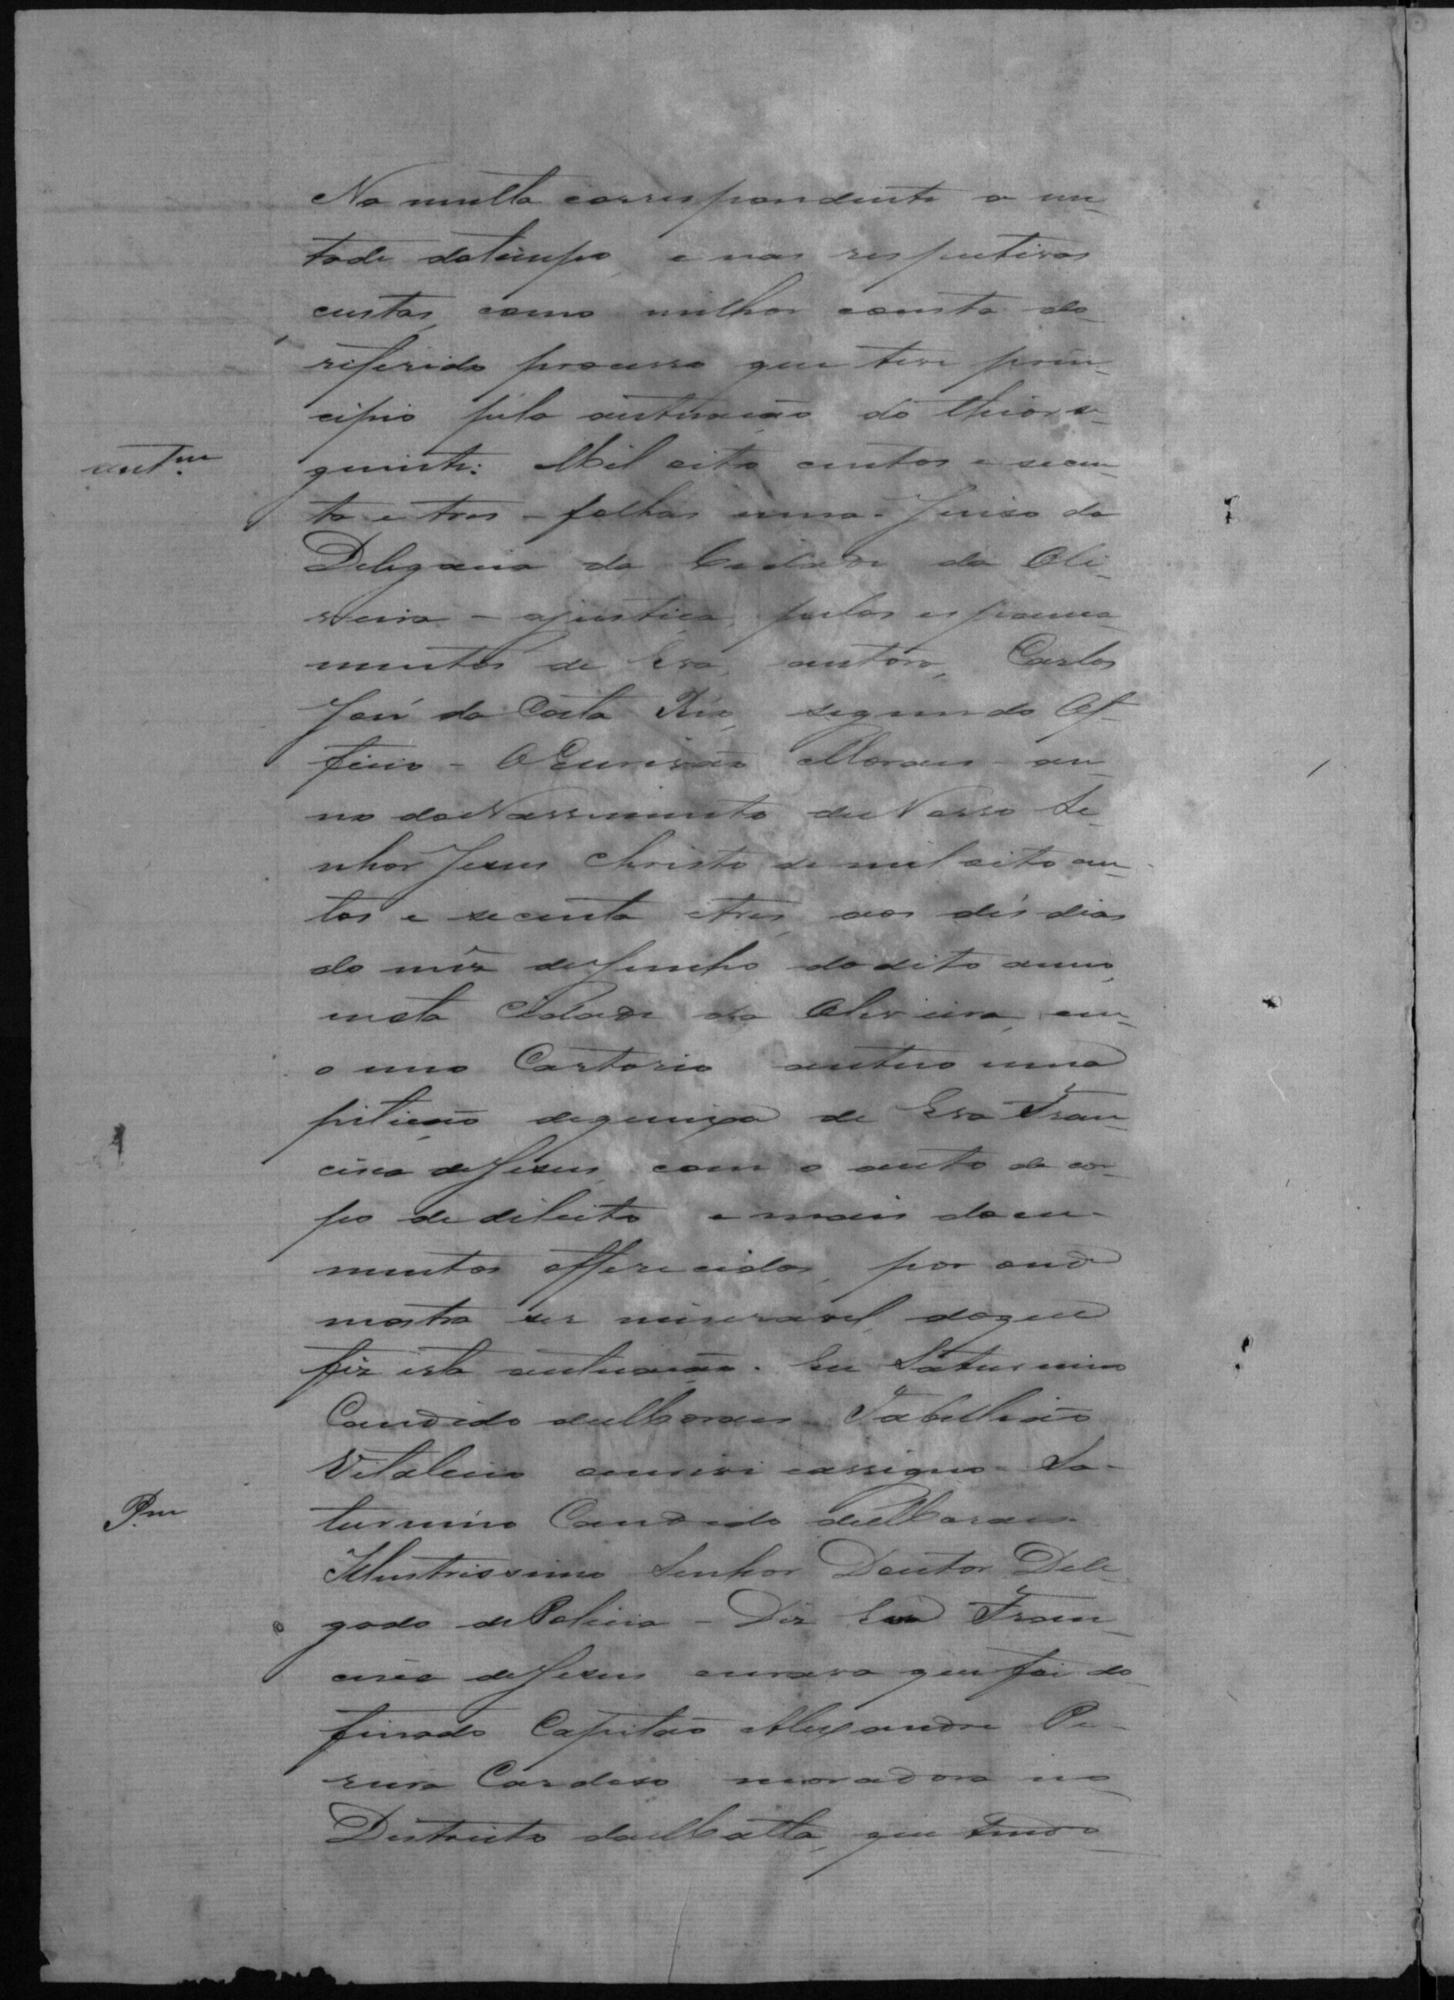 Na multa correspondente a me-
tade do tempo, e nas respectivas
custas, como milhor consta do
referido processo que teve prin-
cipio pela autuação do theor se-
autm.
guinte: Mil oito centos e secen-
ta e tres - folhas uma. Juiso da
Delegacia da Cidade da Oli-
veira - ajustiça pelos espanca
mentos de Eva, autora, Carlos
José da Costa Réo, segundo Of-
ficio - O Escrivão Moraes - an-
no do Nassimento de Nosso Se-
nhor Jesus Christo de mil oito cen-
tos e secenta etres, aos dés dias
do mêz de Junho do dito anno,
nesta Cidade da Oliveira, em
o meo Cartorio autuo uma
petição de queixa de Eva Fran-
cisca de Jesus, com o auto de cor-
po de delicto e mais docu-
mentos offerecidos, por onde
mostra ser miseravel, do que
fiz esta autuação. Eu Saturnino
Candido de Moraes Tabellião
Vitalicio escrevi eassigno - Sa-
Pm
turnino Candido de Moraes.
Illustrissimo Senhor Doutor Dele
gado de Policia - Diz Eva Fran-
cisca de Jesus escrava que foi do
finado Capitão Alexandre Pe-
reira Cardoso moradora no
Districto da Matta, que tendo